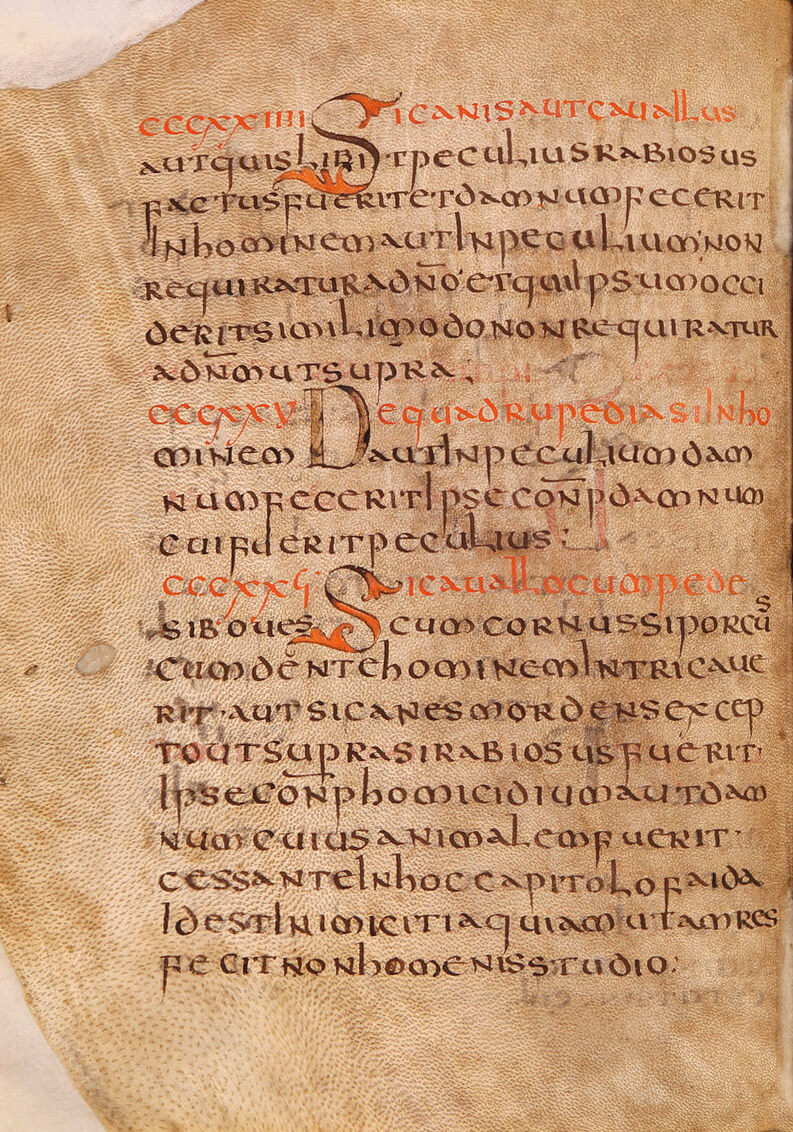 CCCXXIIII SICANISAUTCAUALLUS
AUTQUISLIBITPECULIUSRABIOSUS
FACTUSFUERITETDAMNUMFECERIT
INHOMINEMAUTINPECULIUM·NON
REQUIRATURADN̄O·ETQUIIPSUMOCCI
DERITSIMILIMODONONREQUIRATUR
ADN̄MUTSUPRA;
CCCXXV DEQUADRUPEDIASIINHO
MINEMAUTINPECULIUMDAM
NUMFECERITIPSECON̄PDAMNUM
CUIFUERITPECULIUS:
CCCXXVI SICAUALLOCUMPEDE
SIBOUESCUMCORNUSSIPORCŪS
CUMDENTEHOMINEMINTRICAUE
RIT·AUTSICANESMORDENSEXCEP
TOUTSUPRASIRABIOSUSFUERIT·
IPSECON̄PHOMICIDIUMAUTDAM
NUMCUIUSANIMALEMFUERIT·
CESSANTEINHOCCAPITOLOFAIDA
IDESTINIMICITIAQUIAMUTAMRES
FECITNONHOMENISSTUDIO: